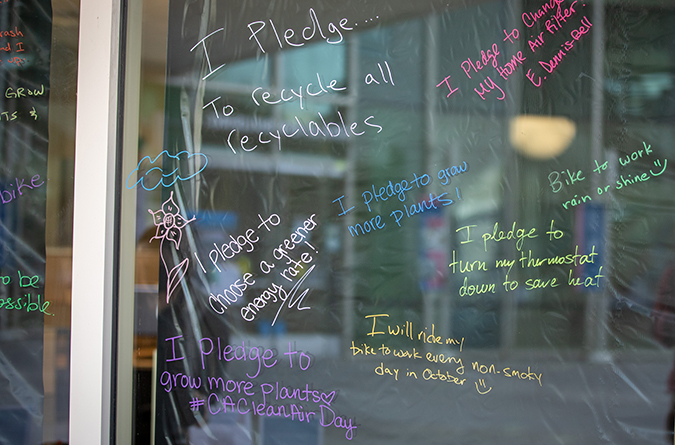 rash
and I
GROW
TS &
bike
to be
possible.
I Pledge....
To recycle all
recyclables
I Pledge to Change
my home Air Filter
E. Dennis-Bell
I pledge to grow
more plants!
Bike to work
rain or shine
I pledge to
choose a greener
energy rate!
I pledge to
turn my thermostat
down to save heat
I will ride my
bike to work every non-smoky
day in October
I Pledge to
grow more plants♡
#CACleanAirDay